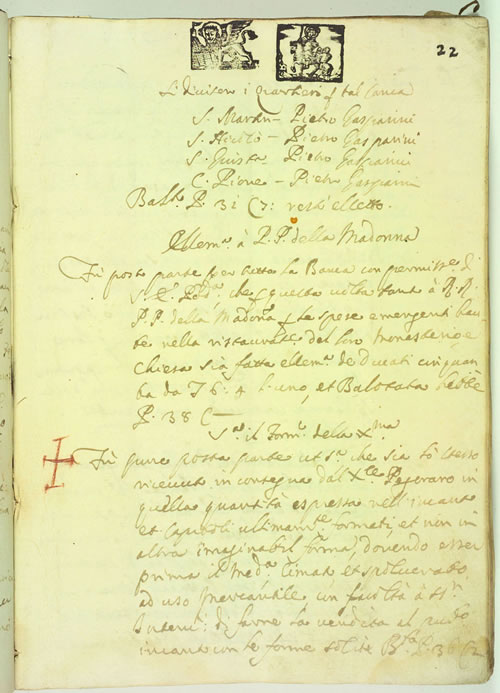 22
Si divisero i Quartieri p tal causa
S. Martin - Pietro Gasparini
S. Nicolò - Pietro Gasparini
S. Giusta Pietro Gasparini
C. Pieve - Pietro Gasparini
Ball. P. 32 C 7: restò elletto.
Ellem.a à P. P. della Madonna
Fù posta parte per tutta la Banca con permiss.e di
S. E. che p questa volta tanto à P. P.
P. P. della Madona p le spese emergenti
nella ristauratne del loro Monasterio e
Chiesa sia fatta ellem.a de Ducati cinquan
ta da T 6: 4 l'uno, et Balotata hebbe
P. 38 C —
S.a il Form.o della X.ma
Fù pure posta parte ut s.a che sia
ricevuto in consegna dal Pesavaro in
quella quantità espressa nell'incanto
et Capitoli ultimam.te formati, et non in
altra imaginabil forma, dovendo esser
prima il med.o et
ad uso mercantile con facoltà à
Interv: di farne la vendita al
incanto con le forme solite P. 36